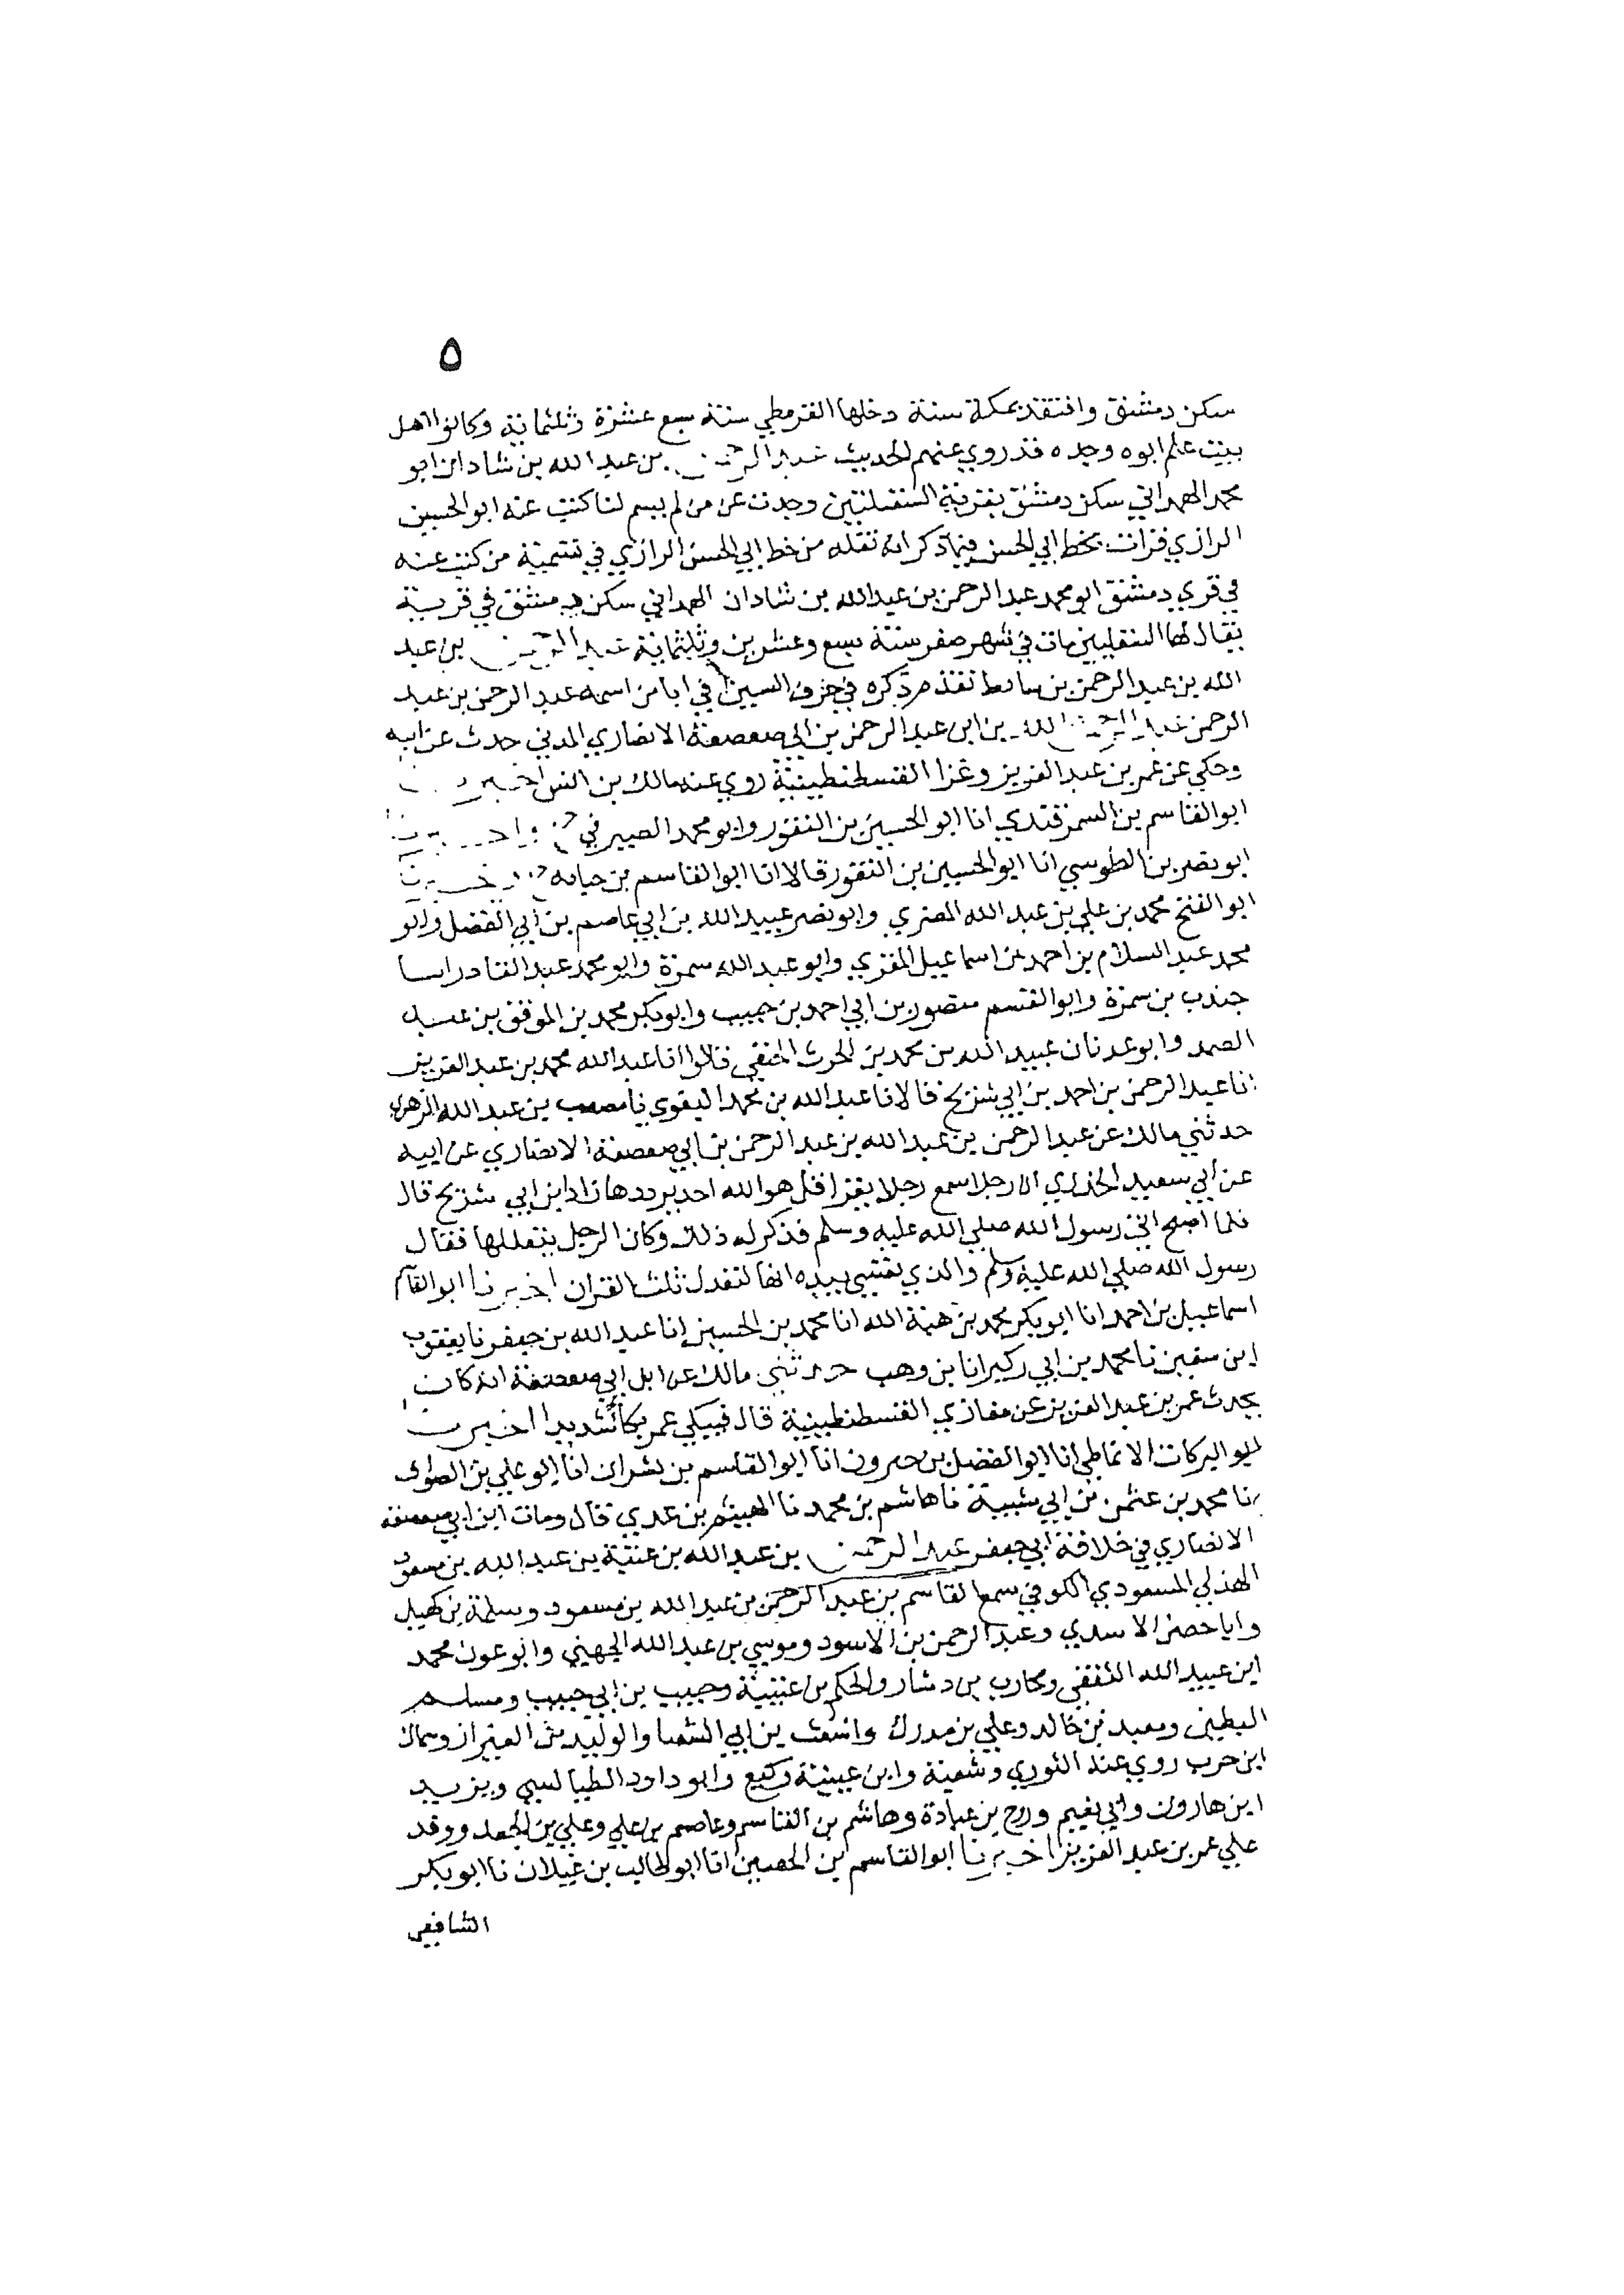 ٥
سكن دمشق وافتقد بمكة سنة دخلها القرمطي سنة سبع عشرة وثلثماية وكانوا اهل
بيت علم ابوه وجده قد روي عنهم الحديث عبد الرحمن بن عبد الله بن شادان ابو
محمد الهمداني سكن دمشق بقرية السقليين وحدث عن من لم يسم لنا كتب عنه ابو الحسين
الرازي قرات بخط ابي الحسن فيما ذكر انه نقله من خط ابي الحسن الرازي في تسمية من كتب عنه
في قري دمشق ابو محمد عبد الرحمن بن عبد الله بن شادان الهمداني سكن دمشق في قرية
يقال لها السقليين مات في شهر صفر سنة سبع وعشرين وثلثماية عبد الرحمن بن عبد
الله بن عبد الرحمن بن سابط تقدم ذكره في حرف السين في ابا من اسمه عبد الرحمن بن عبد
الرحمن عبد الرحمن بن ابن عبد الرحمن بن ابي صعصعة الانصاري المدني حدث عن ابيه
وحكي عن عمر بن عبد العزيز وغزا القسطنطينية روي عنه مالك بن انس اخبرنا
ابو القاسم بن السمرقندي انا ابو الحسين بن النقور وابو محمد الصيرفي ح واخبرنا
ابو نصر بن الطوسي انا ابو الحسين بن النقور قالا انا ابو القاسم بن حبابه ح واخبرنا
ابو الفتح محمد بن علي بن عبد الله المصري وابو نصر عبيد الله بن ابي عاصم بن ابي الفضل وابو
محمد عبد السلام بن احمد بن اسماعيل المقري وابو عبد الله سمرة وابو محمد عبد القادر ابنا
جندب بن سمرة وابو القسم منصور بن ابي احمد بن حبيب وابو بكر محمد بن الموفق بن عبد
الصمد وابو عدنان عبيد الله بن محمد بن الحرث الحنفي قالوا انا عبد الله محمد بن عبد العزيز
انا عبد الرحمن بن احمد بن ابي شريح قالا نا عبد الله بن محمد البغوي نا مصعب بن عبد الله الزهري
حدثني مالك عن عبد الرحمن بن عبد الله بن عبد الرحمن بن ابي صعصعة الانصاري عن ابيه
عن ابي سعيد الخدري ان رجلا سمع رجلا يقرا قل هو الله احد يرددها زاد ابن ابي شريح قال
فلما اصبح اتي رسول الله صلي الله عليه وسلم فذكر له ذلك وكان الرجل يتقللها فقال
رسول الله صلي الله عليه وسلم والذي نفسي بيده انها لتعدل ثلث القران اخبرنا ابو القاسم
اسماعيل بن احمد انا ابو بكر محمد بن هبة الله انا محمد بن الحسين انا عبد الله بن جعفر نا يعقوب
ابن سفين نا محمد بن ابي زكير انا بن وهب حدثني مالك عن ابن ابي صعصعة انه كان
يحدث عمر بن عبد العزيز عن مغازي القسطنطينية قال فيبكي عمر بكاً شديدا اخبرنا
ابو البركات الانماطي انا ابو الفضل بن خيرون انا ابو القاسم بن بشران انا ابو علي بن الصواف
نا محمد بن عثمن بن ابي شيبة نا هاشم بن محمد نا الهيثم بن عدي قال ومات ابن ابي صعصعة
الانصاري في خلافة ابي جعفر عبد الرحمن بن عبد الله بن عتبة بن عبد الله بن مسعود
الهذلي المسعودي الكوفي سمع القاسم بن عبد الرحمن بن عبد الله بن مسعود وسلمة بن كهيل
وابا حصن الاسدي وعبد الرحمن بن الاسود وموسي بن عبد الله الجهني وابو عون محمد
ابن عبيد الله الثقفي ومحارب بن دثار والحكم بن عتيبة وحبيب بن ابي حبيب ومسلم
البطين ومعبد بن خالد وعلي بن مدرك واشعث بن ابي الشعثا والوليد بن العيزار وسماك
ابن حرب روي عنه الثوري وشعبة وابن عيينة وكيع وابو داود الطيالسي ويزيد
ابن هارون وابي نعيم وروح بن عبادة وهاشم بن القاسم وعاصم بن علي وعلي بن الجعد ووفد
علي عمر بن عبد العزيز اخبرنا ابو القاسم بن الحصين انا ابو طالب بن غيلان نا ابو بكر
الشافعي